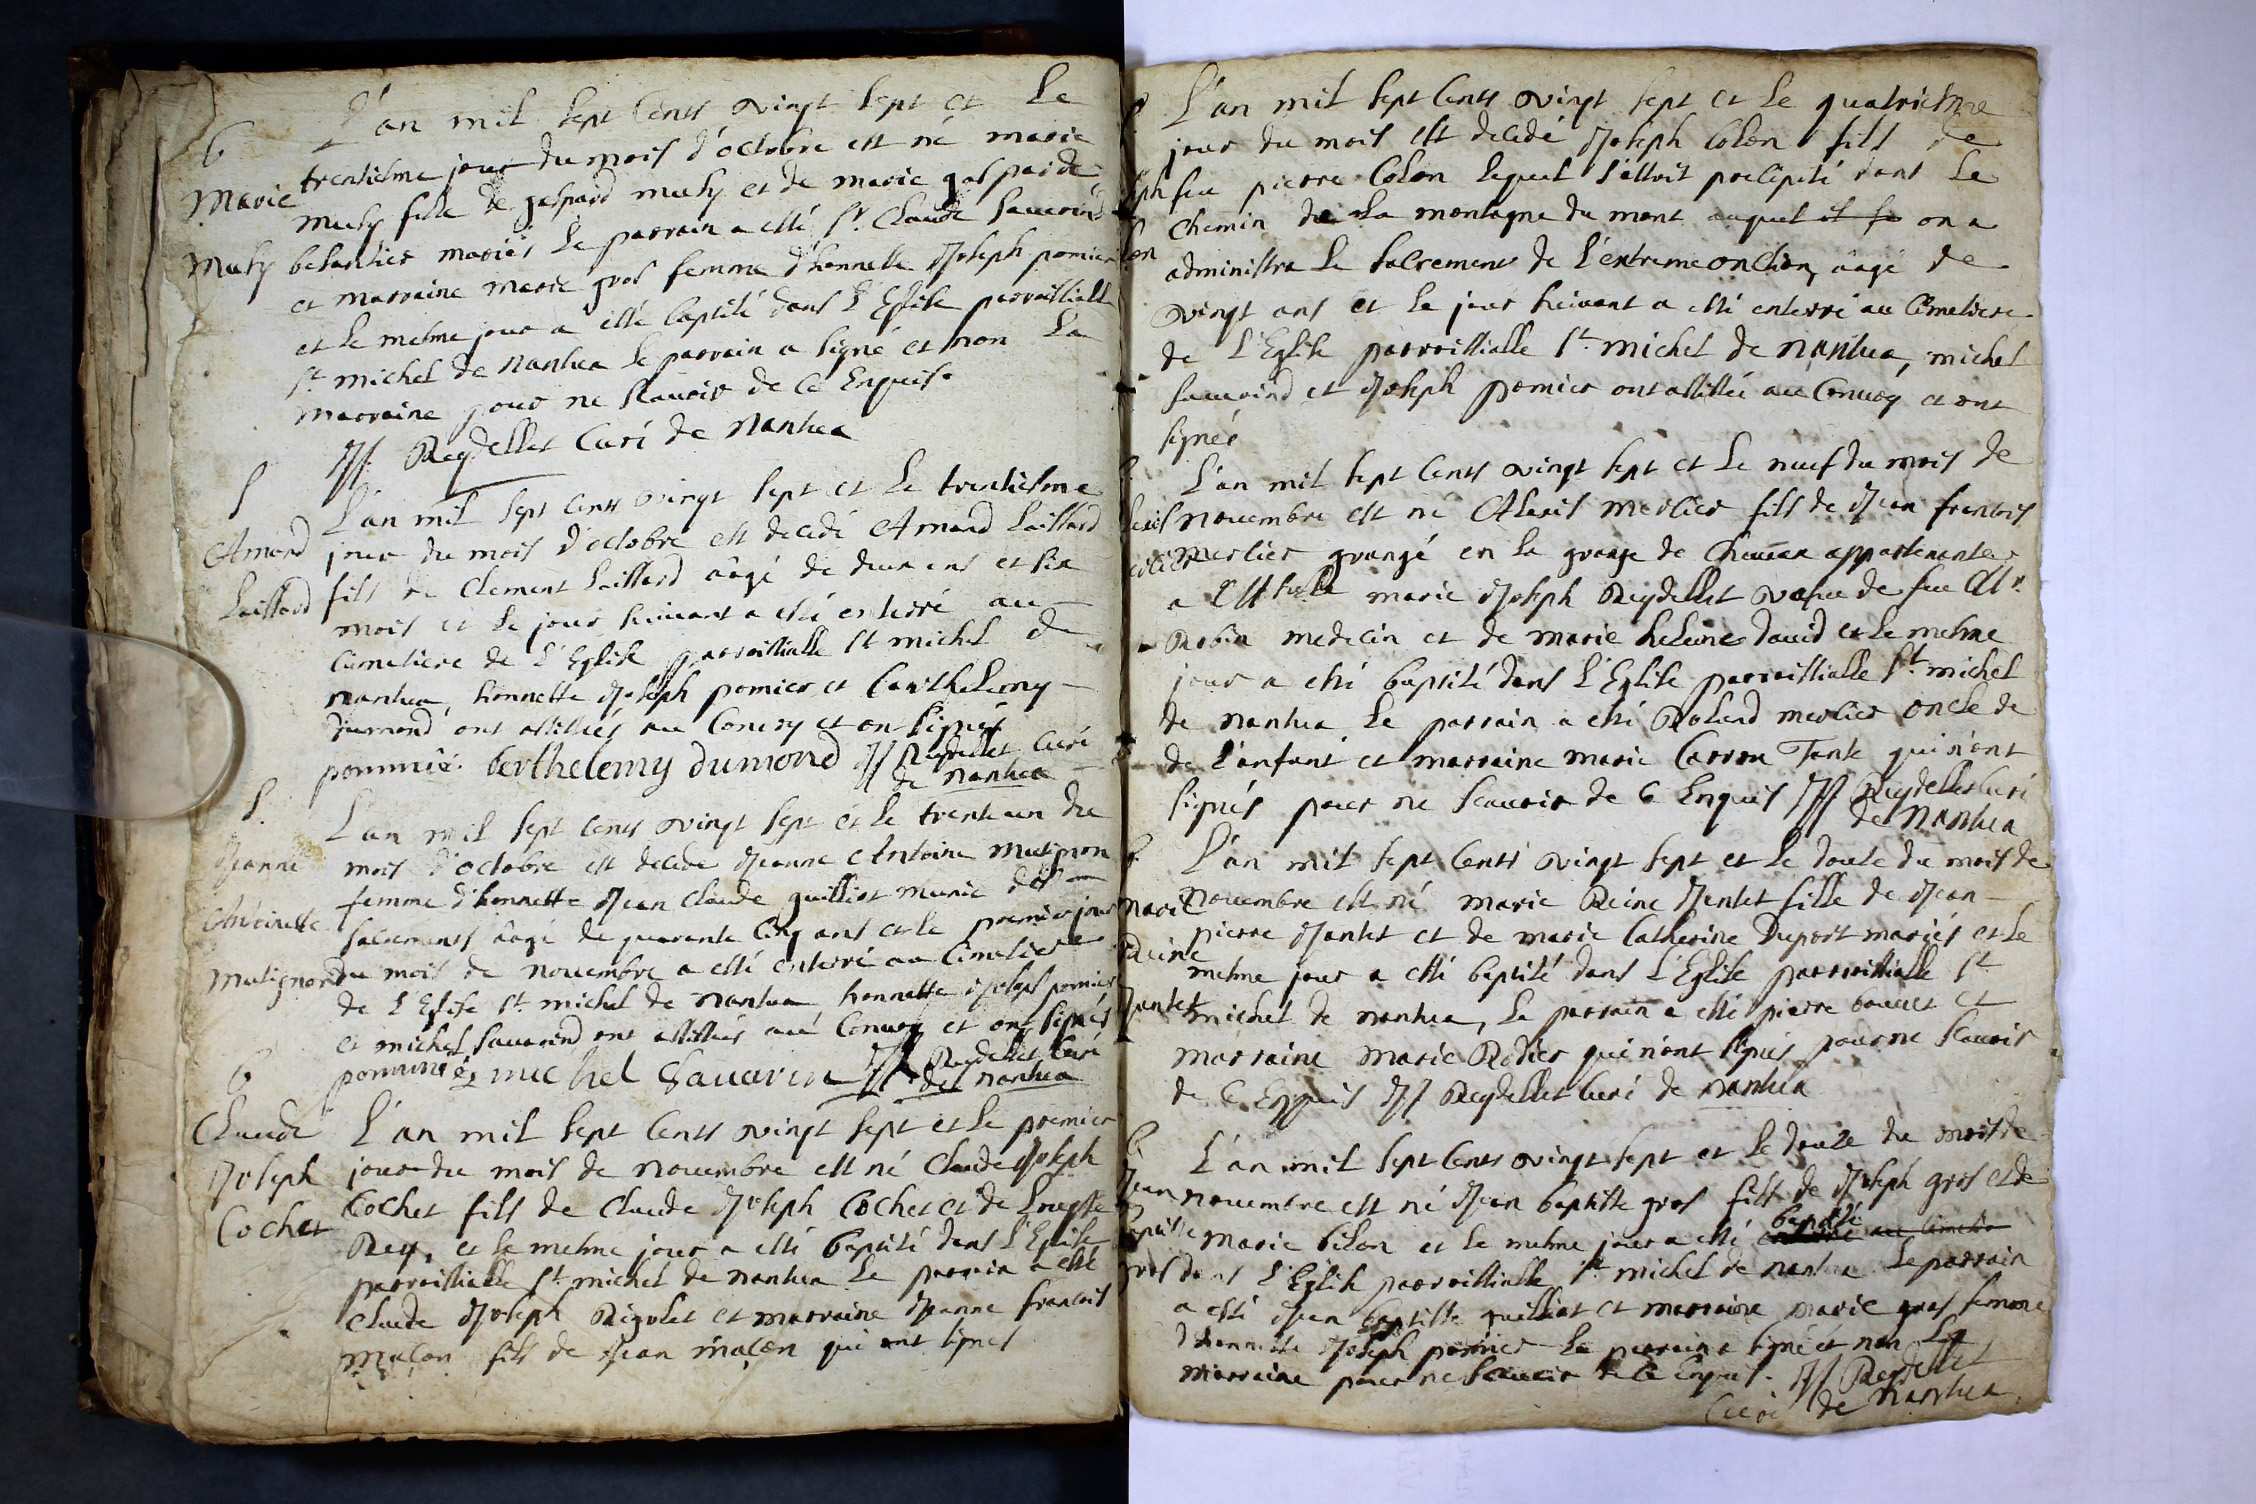 b
L'an mil sept Cents vingt sept et Le
trentiesme jour du mois d'octobre est né marie
Marie
muty fille de gaspard muty et de marie gasparde
Muty
mariés Le parrain a esté Sr. Claude Sauarind
et marraine marie gros femme d'honnette Joseph pomier
et Le mesme jour a esté baptisé dans L'Eglise parroissialle
St. michel de nantua Le parrain a signé et non La
marraine pour ne scauoir de Ce Enquise
JJ Reydellet Curé de nantua
S
L'an mil sept Cents vingt sept et Le trentiesme
Amand
jour du mois d'octobre est decedé Amand Laillard
Laillard
fils de Clement Laillard aâgé de deux ans et six
mois et Le jour suiuant a esté enterré au
Cimetiere de L'Eglise parroissialle St michel de
nantua, honnette Joseph pomier et barthelemy
dumond ont assistés au Conuoy et on signés
pommié. berthelemy dumond JJ Reydellet Curé
de nantua
S.
L'an mil sept Cents vingt sept et Le trente un du
Jeanne
mois d'octobre est decedé Jeanne Antoine mutignon
femme d'honnette Jean Claude guilliot munie des
Antoinette
sacrements aâgé de quarante Cinq ans et Le premier jour
Mutignon
du mois de nouembre a esté enterré au Cimetiere
de L'Eglise St. michel de nantua honnette Joseph pomier
et michel Sauarind ont assistés au Conuoy et ont signés
pommié michel Sauarin JJ Reydellet Curé
de nantua
b
Claude
L'an mil sept Cents vingt sept et Le premier
Joseph
jour du mois de nouembre est né Claude Joseph
Cochet
Cochet fils de Claude Joseph Cochet et de
Rey, et Le mesme jour a esté baptisé dans L'Eglise
parroissialle St. michel de nantua Le parrain a esté
Claude Joseph Rigolet et marraine Jeanne francois
maçon fils de Jean maçon qui ont signés
L'an mil sept Cents vingt sept et Le quatriesme
jour du mois est decedé Joseph Colon fils de
feu pierre Colon Lequel s'estoit precipité dans Le
chemin de La montagne du mont auquel il on a
administra Le sacrement de L'extreme onction, aâgé de
vingt ans et Le jour suiuant a esté enterré au Cimetiere
de L'Eglise parroissialle St. michel de nantua, michel
Sauarind et Joseph pomier ont assistés au Conuoy et ont
signés
L'an mil sept Cents vingt sept et Le neuf du mois de
nouembre est né Alexis merlier fils de Jean francois
merlier grangé en La grange de appartenante
a marie Joseph Reydellet veufue de feu Mr.
Robin medecin et de marie heleine dauid et Le mesme
jour a esté baptisé dans L'Eglise parroissialle St. michel
de nantua Le parrain a esté Roland merlier oncle de
de L'anfant et marraine marie Carron Tante qui n'ont
signés pour ne scauoir de Ce Enquis JJ Reydellet Curé
de nantua
b.
L'an mil sept Cents vingt sept et Le douze du mois de
Marie
nouembre est né marie Reine Jantet fille de Jean
Reine
pierre Jantet et de marie Catherine Duport mariés et Le
mesme jour a esté baptisé dans L'Eglise parroissialle St
Jantet
michel de nantua, Le parrain a esté pierre bouuet et
marraine marie Rodier qui n'ont signés pour ne scauoir
de Ce Enquis JJ Reydellet Curé de nantua
b
L'an mil sept Cents vingt sept et Le douze du mois de
Jean
nouembre est né Jean baptiste gros fils de Joseph gros et de
baptisé
marie bilon et Le mesme jour a esté enterré au Cimetie
dans L'Eglise parroissialle St michel de nantua Le parrain
a esté Jean baptiste guilliot et marraine marie gros femme
d'honnette Joseph pomier Le parrain a signé et non La
marraine pour ne scauoir de Ce Enquis. JJ Reydellet
Curé de nantua